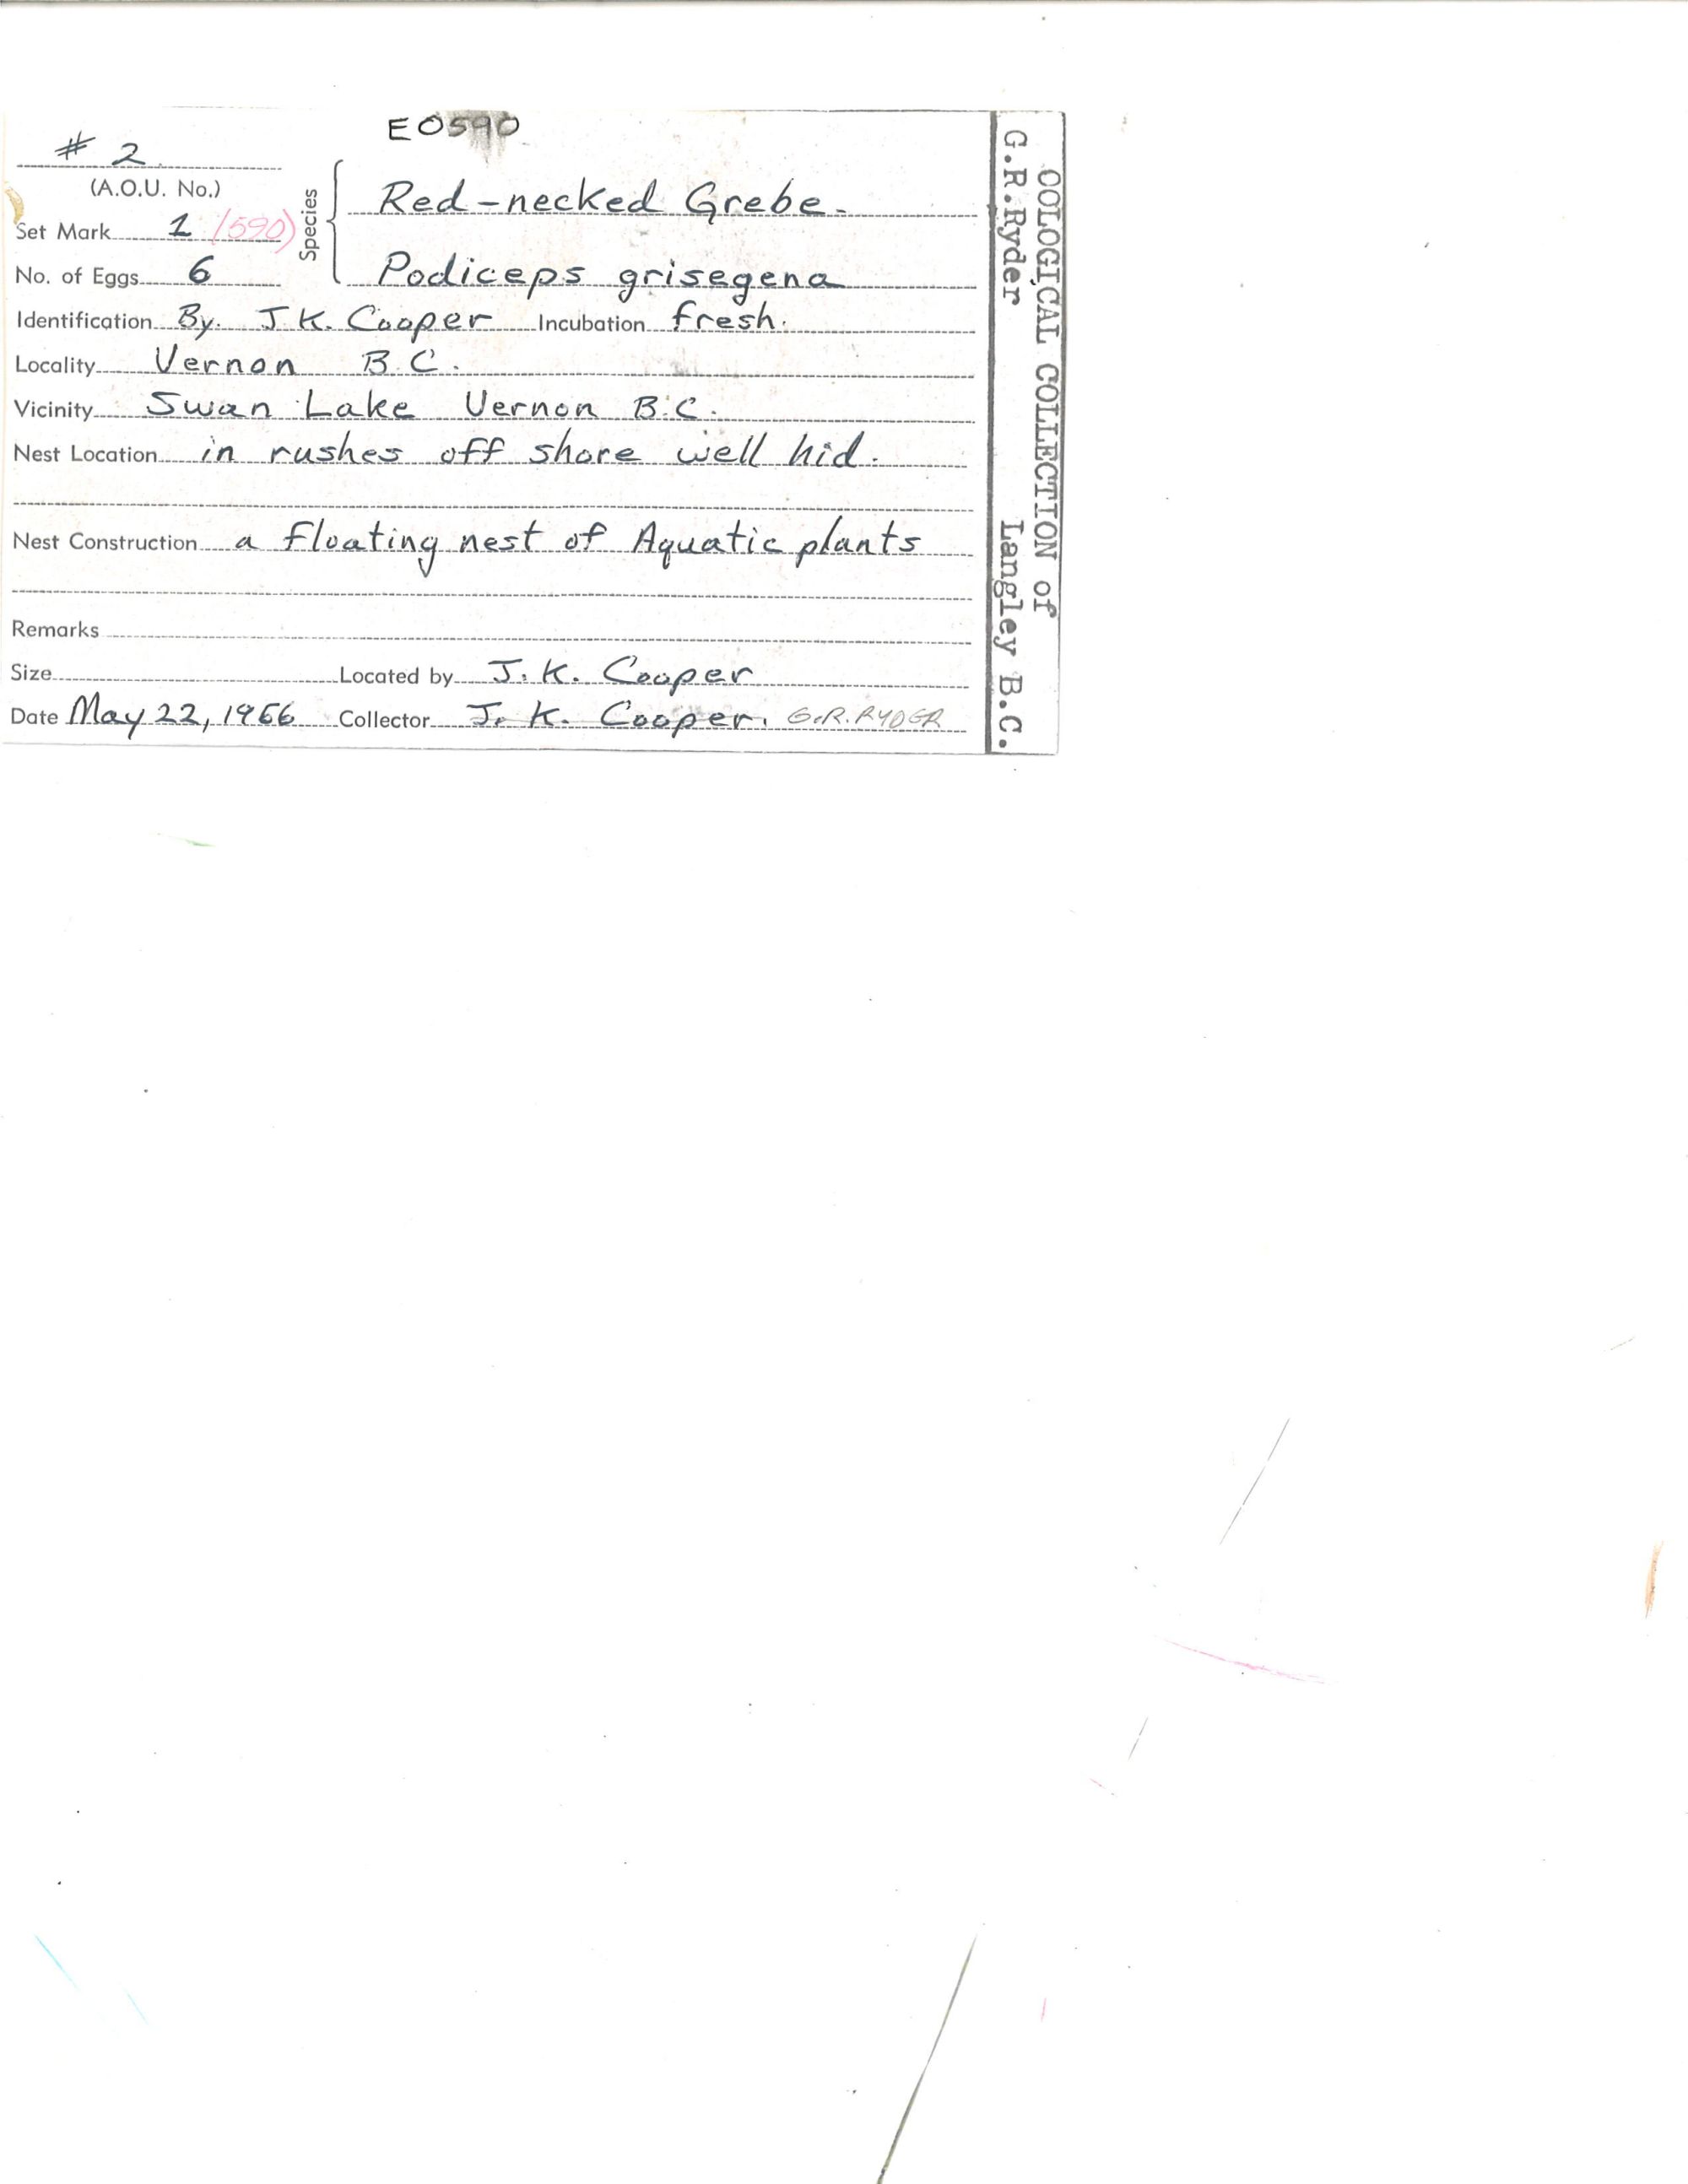 E0590
# 2
(A.O.U. No.)
Set Mark 1 (590)
No. of Eggs 6
Species
Red-necked Grebe.
Podiceps grisegena
Identification By. J.K. Cooper Incubation fresh.
Locality Vernon B.C.
Vicinity Swan Lake Vernon B.C.
Nest Location in rushes off shore well hid.
Nest Construction a floating nest of Aquatic plants
Remarks
Size Located by J. K. Cooper
Date May 22, 1966 Collector J. K. Cooper. G.R. RYDER
OOLOGICAL COLLECTION of
G.R.Ryder Langley B.C.